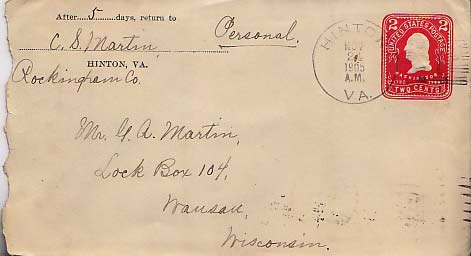 After 5 days, return to
C. S. Martin,
HINTON, VA.
Rockingham Co.
Personal.
HINTON
NOV
1905
A.M.
VA.
2 2
UNITED STATES POSTAGE
WASHINGTON
TWO CENTS
Mr. G. A. Martin,
Lock Box 104,
Wausau,
Wisconsin.